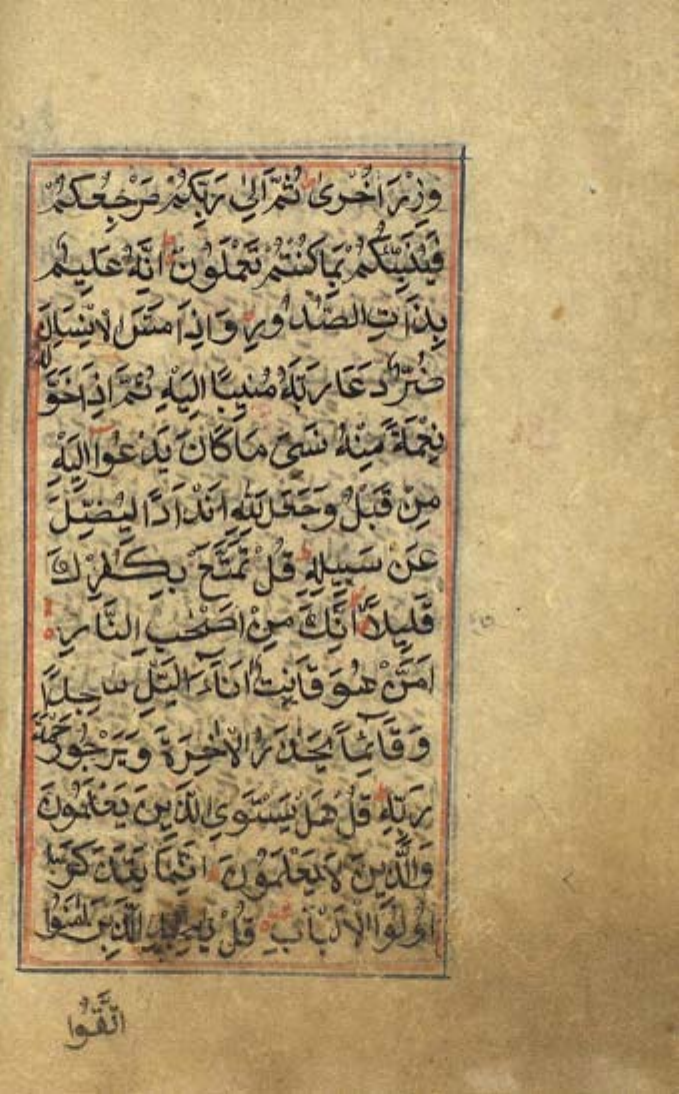 وِزْرَ اُخْرٰى ثُمَّ اِلٰى رَبِّكُمْ مَرْجِعُكُمْ
فَيُنَبِّئُكُمْ بِمَا كُنْتُمْ تَعْمَلُونَ اِنَّهُ عَلِيمٌ
بِذَاتِ الصُّدُورِ وَاِذَا مَسَّ الْاِنْسَانَ
ضُرٌّ دَعَا رَبَّهُ مُنِيبًا اِلَيْهِ ثُمَّ اِذَا خَوَّلَهُ
نِعْمَةً مِنْهُ نَسِىَ مَا كَانَ يَدْعُوٓا اِلَيْهِ
مِنْ قَبْلُ وَجَعَلَ لِلّٰهِ اَنْدَادًا لِيُضِلَّ
عَنْ سَبِيلِهِ قُلْ تَمَتَّعْ بِكُفْرِكَ
قَلِيلًا اِنَّكَ مِنْ اَصْحٰبِ النَّارِ
اَمَّنْ هُوَ قَانِتٌ اٰنَاءَ الَّيْلِ سَاجِدًا
وَقَائِمًا يَحْذَرُ الْاٰخِرَةَ وَيَرْجُوا رَحْمَةَ
رَبِّهِ قُلْ هَلْ يَسْتَوِى الَّذِينَ يَعْلَمُونَ
وَالَّذِينَ لَا يَعْلَمُونَ اِنَّمَا يَتَذَكَّرُ
اُولُوا الْاَلْبَابِ قُلْ يٰعِبَادِ الَّذِينَ اٰمَنُوا
اتَّقُوا